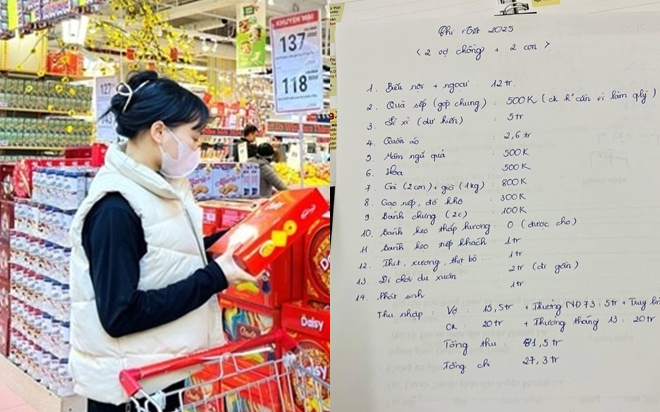 KHUYẾN MẠI
137
118
127
Daisy
Chi Tết 2025
( 2 vợ chồng + 2 con )
1. Biếu nội + ngoại : 12tr
2. Quà sếp (góp chung) : 500K (ck k cần vì làm qlý)
3. Lì xì (dự kiến) : 5tr
4. Quần áo : 2,6tr
5. Mâm ngũ quả : 500K
6. Hoa : 500K
7. Gà (2 con) + giò (1kg) : 800K
8. Gạo nếp, đỗ khô : 300K
9. Bánh chưng (2c) : 100K
10. Bánh kẹo thắp hương : 0 (được cho)
11. Bánh kẹo tiếp khách : 1tr
12. Thịt, xương, thịt bò : 1tr
13. Đi chơi du xuân : 2tr (đi gần)
14. Phát sinh : 1tr
Thu nhập : Vợ : 15,5tr + Thưởng NĐ73 : 5tr +
Ck : 20tr + Thưởng tháng 13 : 20tr
Tổng thu : 81,5tr
Tổng chi : 27,3tr